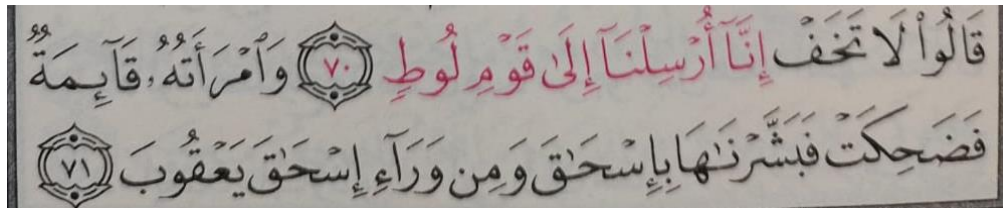 قَالُوا۟ لَا تَخَفْ إِنَّآ أُرْسِلْنَآ إِلَىٰ قَوْمِ لُوطٍ ٧٠ وَٱمْرَأَتُهُۥ قَآئِمَةٌ
فَضَحِكَتْ فَبَشَّرْنَـٰهَا بِإِسْحَـٰقَ وَمِن وَرَآءِ إِسْحَـٰقَ يَعْقُوبَ ٧١